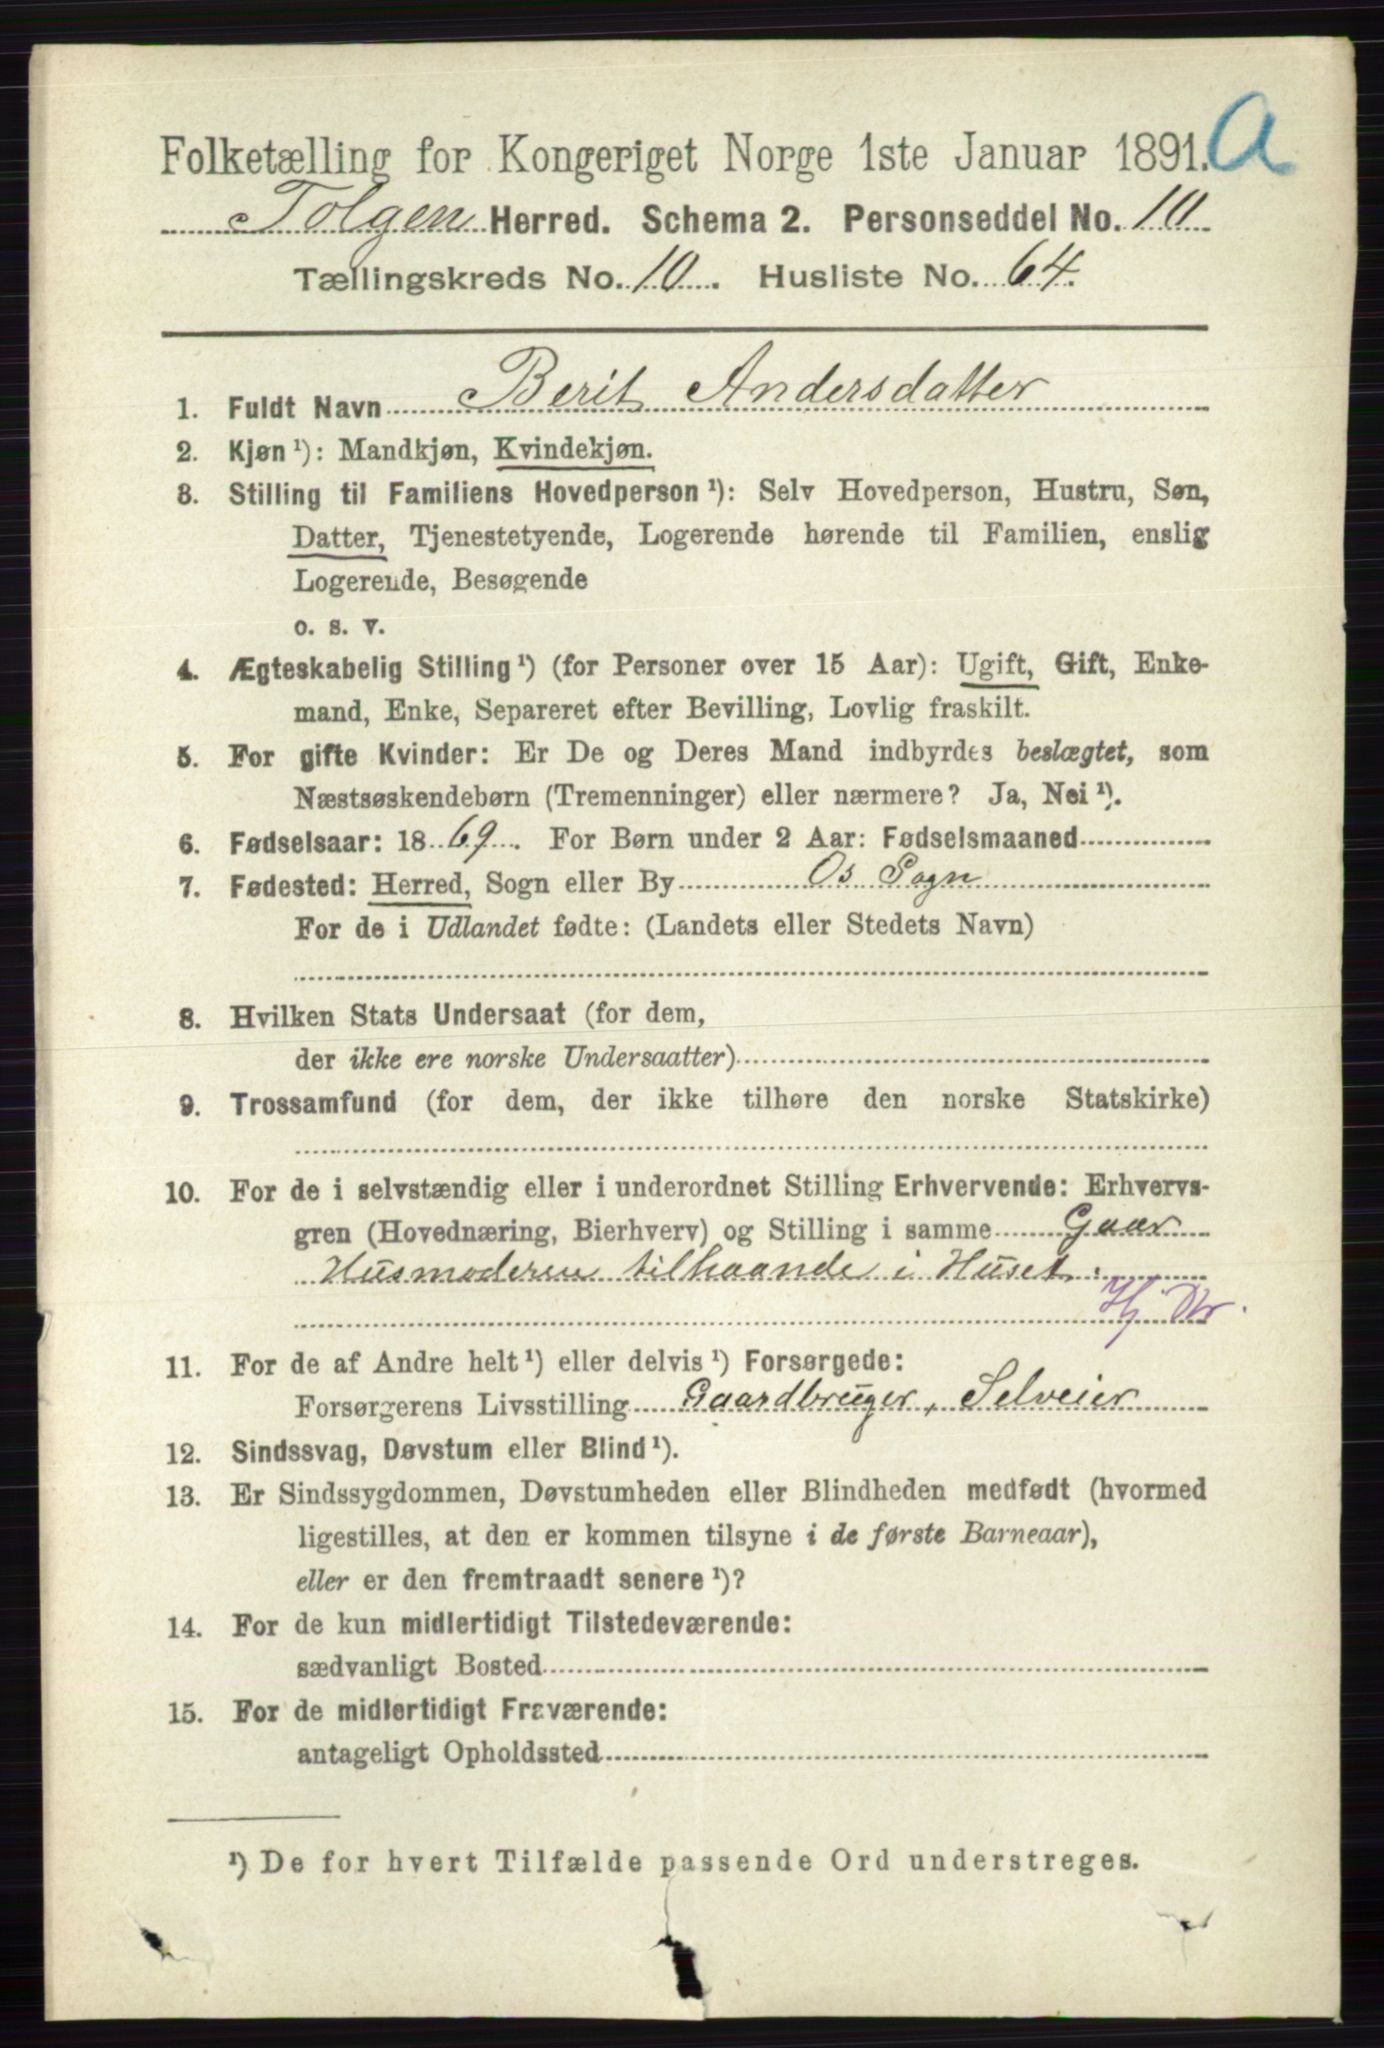 Folketælling for Kongeriget Norge 1ste Januar 1891. A
Tolgen Herred. Schema 2. Personseddel No. 10
Tællingskreds No. 10. Husliste No. 64.
1. Fuldt Navn Berit Andersdatter
2. Kjøn¹): Mandkjøn, Kvindekjøn.
3. Stilling til Familiens Hovedperson¹): Selv Hovedperson, Hustru, Søn,
Datter, Tjenestetyende, Logerende hørende til Familien, enslig
Logerende, Besøgende
o. s. v.
4. Ægteskabelig Stilling¹) (for Personer over 15 Aar): Ugift, Gift, Enke-
mand, Enke, Separeret efter Bevilling, Lovlig fraskilt.
5. For gifte Kvinder: Er De og Deres Mand indbyrdes beslægtet, som
Næstsøskendebørn (Tremenninger) eller nærmere? Ja, Nei¹).
6. Fødselsaar: 1869. For Børn under 2 Aar: Fødselsmaaned
7. Fødested: Herred, Sogn eller By Os Sogn
For de i Udlandet fødte: (Landets eller Stedets Navn)
8. Hvilken Stats Undersaat (for dem,
der ikke ere norske Undersaatter)
9. Trossamfund (for dem, der ikke tilhøre den norske Statskirke)
10. For de i selvstændig eller i underordnet Stilling Erhvervende: Erhvervs-
gren (Hovednæring, Bierhverv) og Stilling i samme Gaar
Husmoderen tilhaande i Huset.
Hj. Dtr.
11. For de af Andre helt¹) eller delvis¹) Forsørgede:
Forsørgerens Livsstilling Gaardbruger, Selveier
12. Sindssvag, Døvstum eller Blind¹).
13. Er Sindssygdommen, Døvstumheden eller Blindheden medfødt (hvormed
ligestilles, at den er kommen tilsyne i de første Barneaar),
eller er den fremtraadt senere¹)?
14. For de kun midlertidigt Tilstedeværende:
sædvanligt Bosted
15. For de midlertidigt Fraværende:
antageligt Opholdssted
¹) De for hvert Tilfælde passende Ord understreges.